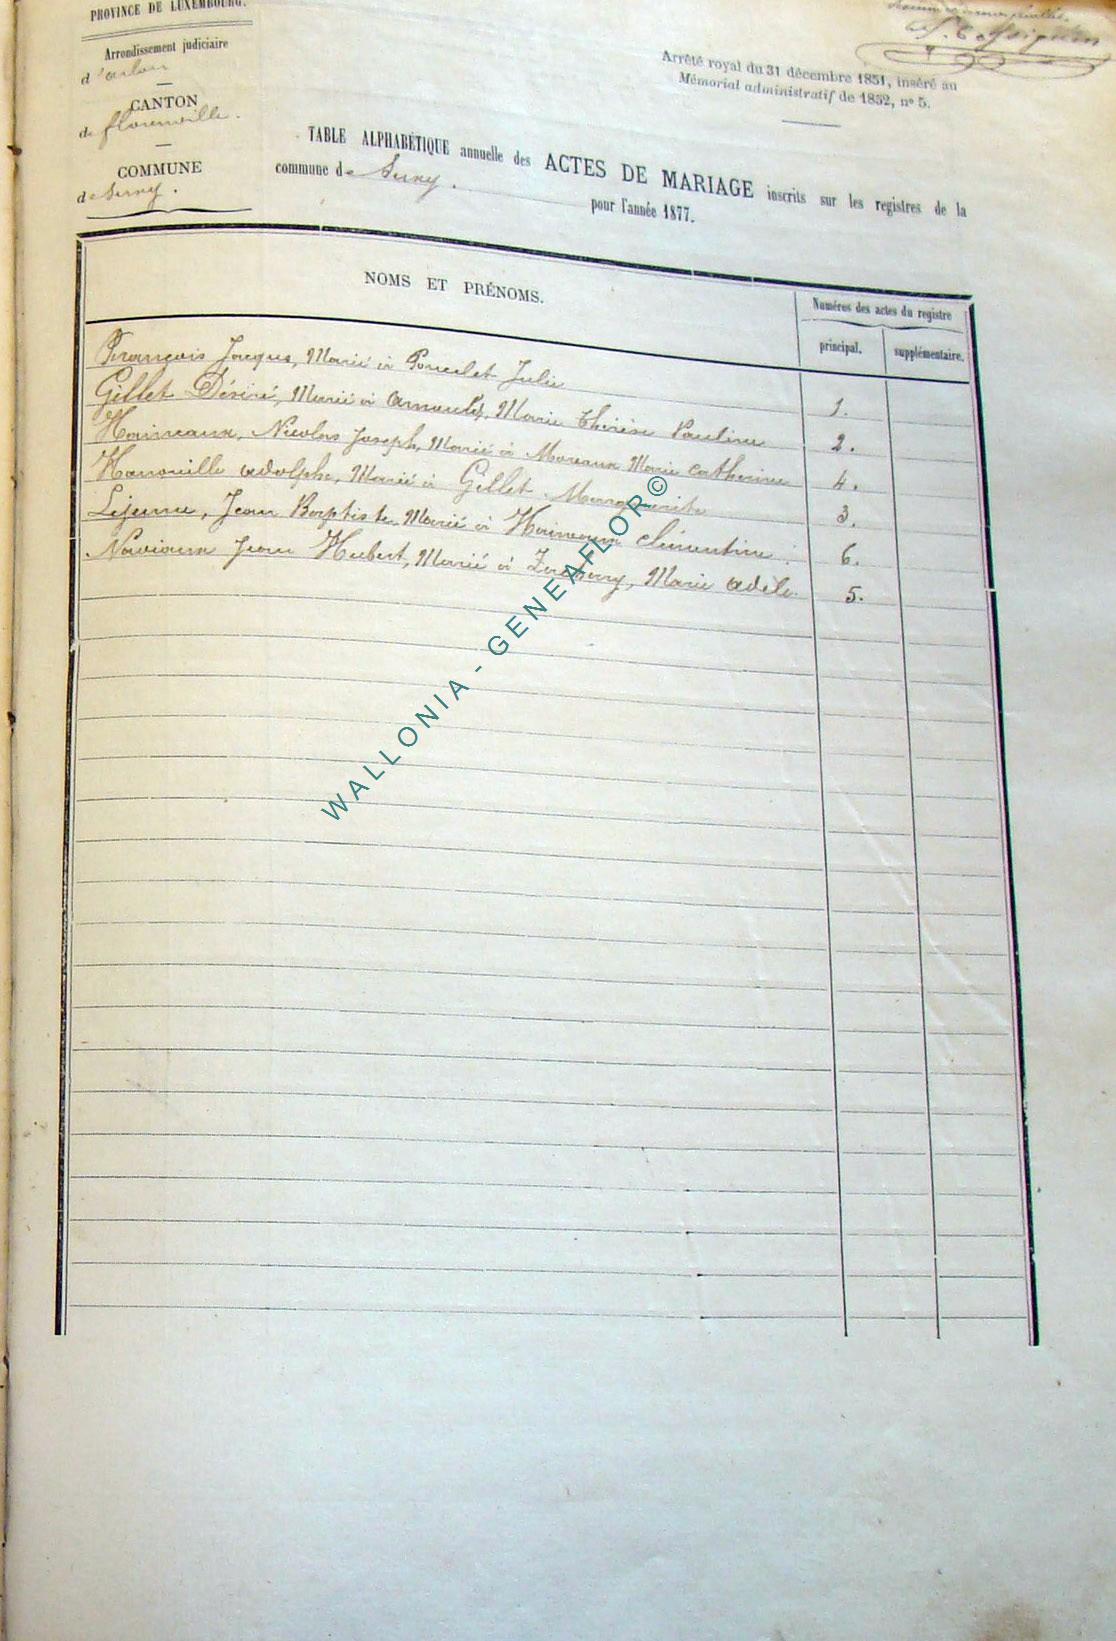 PROVINCE DE LUXEMBOURG.
Arrondissement judiciaire
d'arlon
CANTON
de florenville.
COMMUNE
de Suxy.
Arrêté royal du 31 décembre 1851, inséré au
Mémorial administratif de 1852, n° 5.
TABLE ALPHABÉTIQUE annuelle des ACTES DE MARIAGE inscrits sur les registres de la
commune de Suxy.
pour l'année 1877.
NOMS ET PRÉNOMS.
Numéros des actes du registre
principal.
supplémentaire.
François Jacques, Marié à Poncelet Julie 1.
Gillet Désiré, Marié à Arnould, Marie Thérèse Pauline 2.
Haineaux, Nicolas Joseph, Marié à Moreaux Marie Catherine 4.
Hanouille adolphe, Marié à Gillet Marguerite 3.
Lejeune, Jean Baptiste, Marié à Haineaux clémentine. 6.
Naviaux Jean Hubert, Marié à Marie adèle. 5.
WALLONIA - GENEAFLOR©